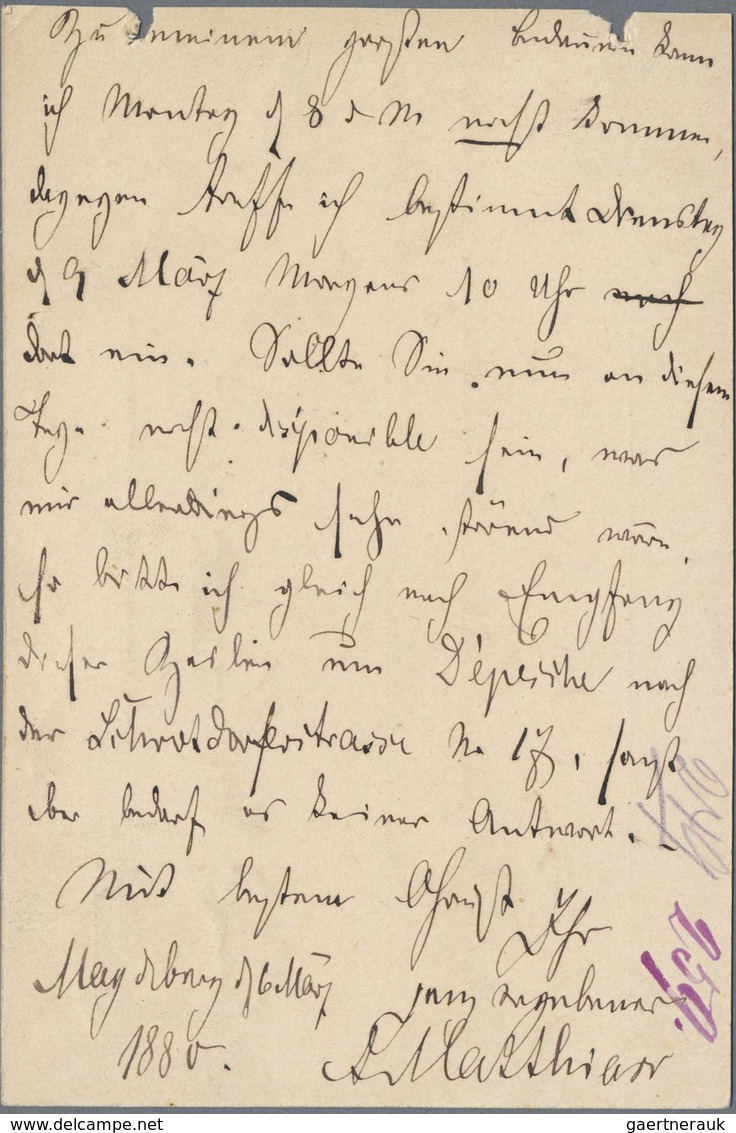 Zu meinem großen Bedauern kann
ich Montag d 8 d M nicht kommen,
dagegen treffe ich bestimmt Dienstag
d 9 März Morgens 10 Uhr noch
dort ein. Sollte Sie nun an diesem
Tage nicht disponible sein, was
mir allerdings sehr störend wäre,
so bitte ich gleich nach Empfang
dieser Zeilen um Dépesche nach
der Schrotdorferstrasse No 17, sonst
aber bedarf es keiner Antwort. –
Mit bestem Gruß
Ihr
Magdeburg d 6 März ganz ergebener
1880. A Matthiae
250.
gaertnerauk